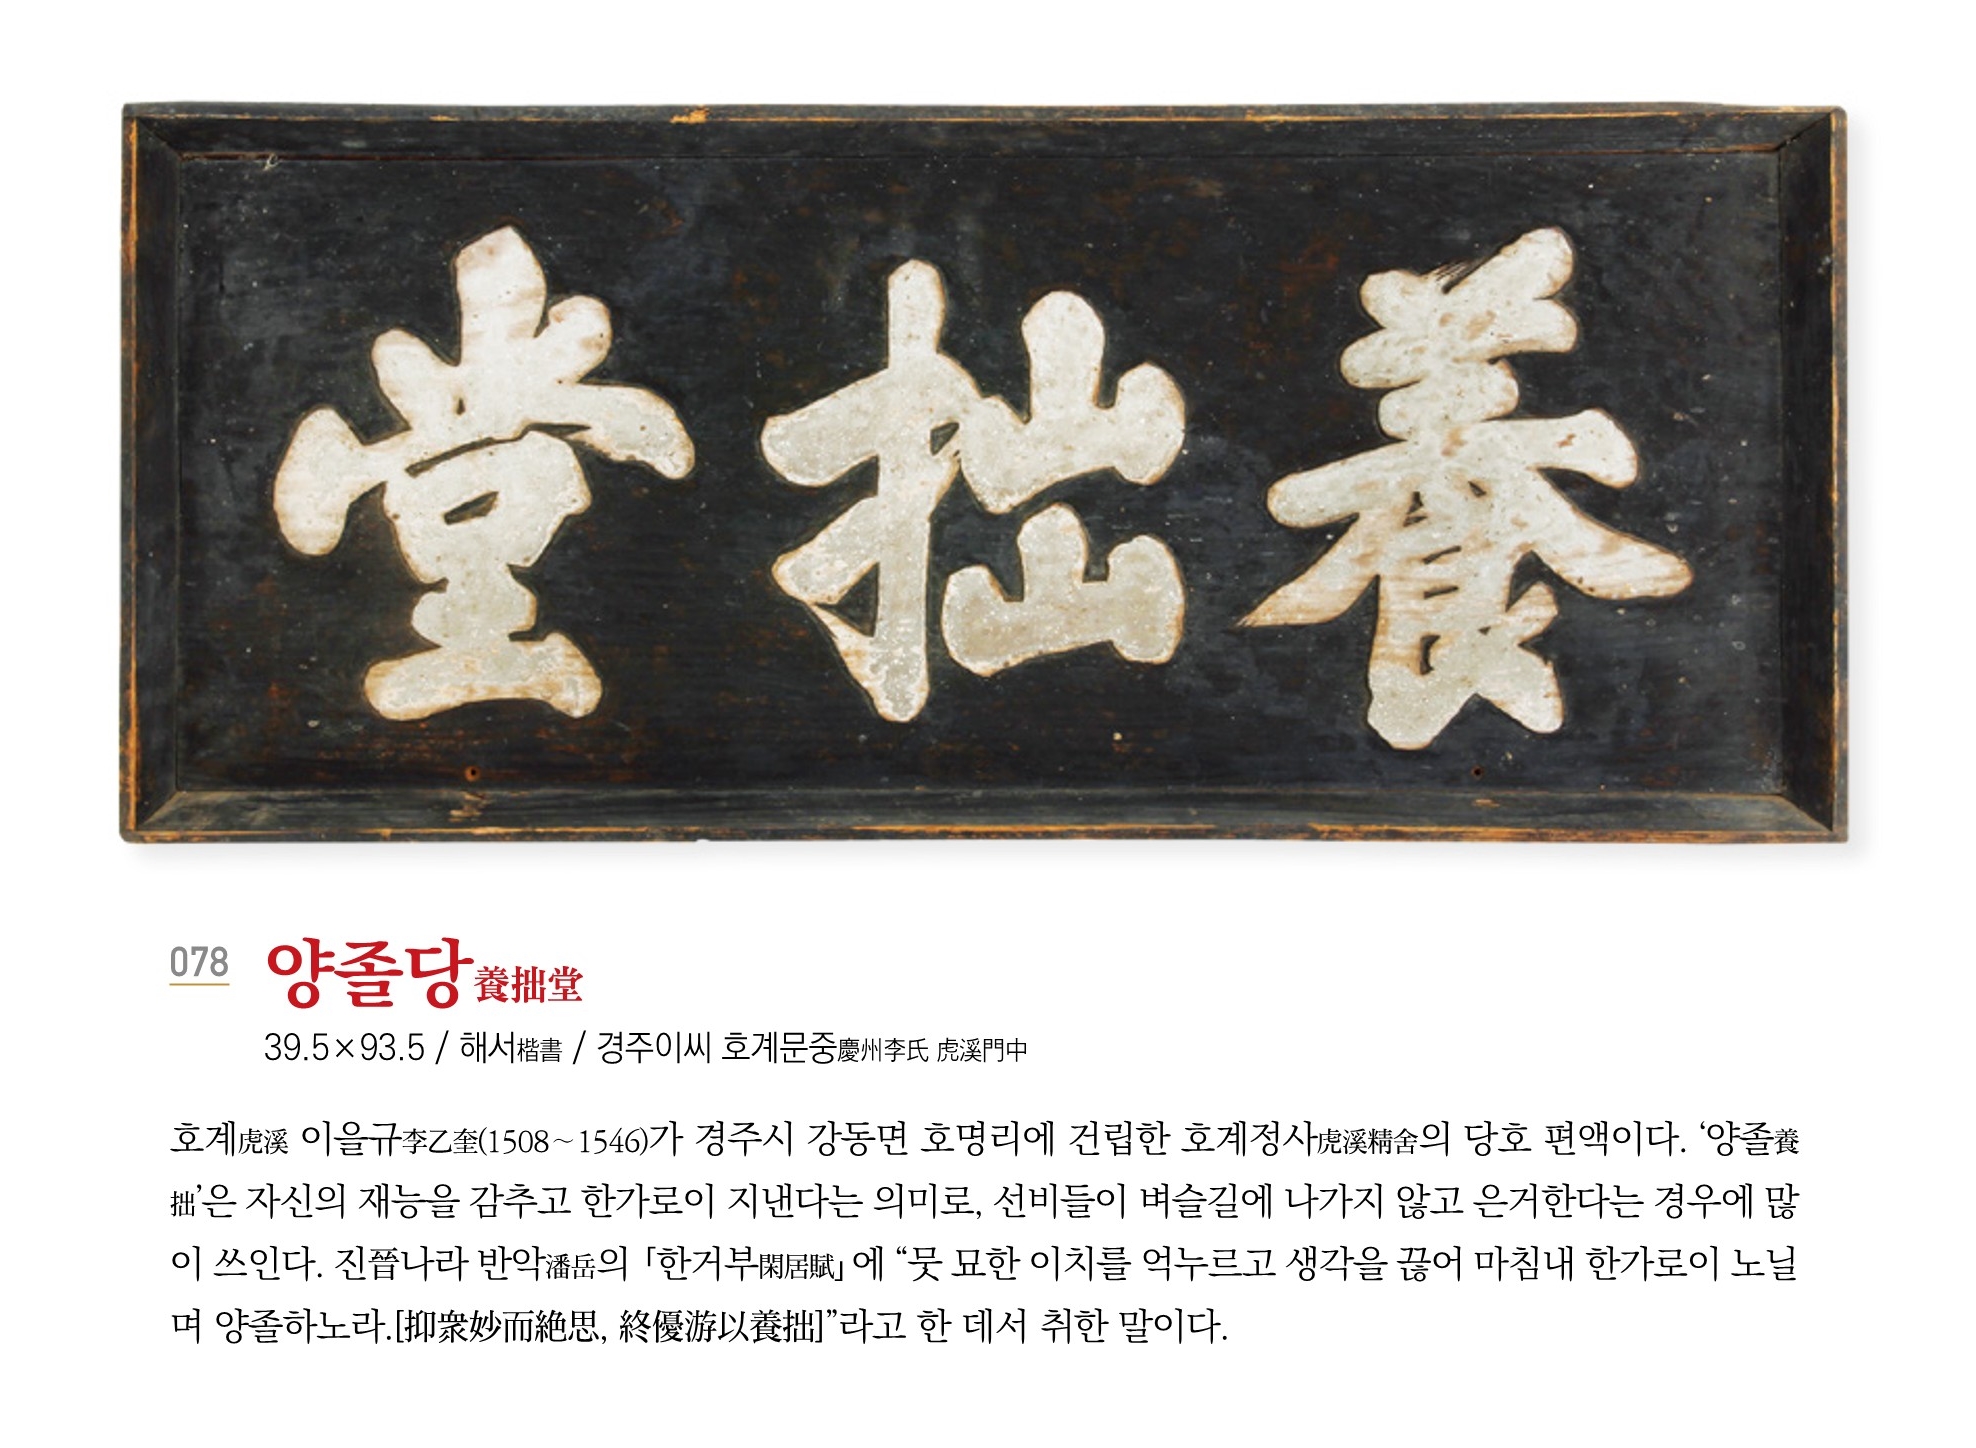 養拙堂
078 양졸당養拙堂
39.5×93.5 / 해서楷書 / 경주이씨 호계문중慶州李氏 虎溪門中
호계虎溪 이을규李乙奎(1508~1546)가 경주시 강동면 호명리에 건립한 호계정사虎溪精舍의 당호 편액이다. ‘양졸養
拙’은 자신의 재능을 감추고 한가로이 지낸다는 의미로, 선비들이 벼슬길에 나가지 않고 은거한다는 경우에 많
이 쓰인다. 진晉나라 반악潘岳의 「한거부閑居賦」에 “뭇 묘한 이치를 억누르고 생각을 끊어 마침내 한가로이 노닐
며 양졸하노라.[抑衆妙而絶思, 終優游以養拙]”라고 한 데서 취한 말이다.